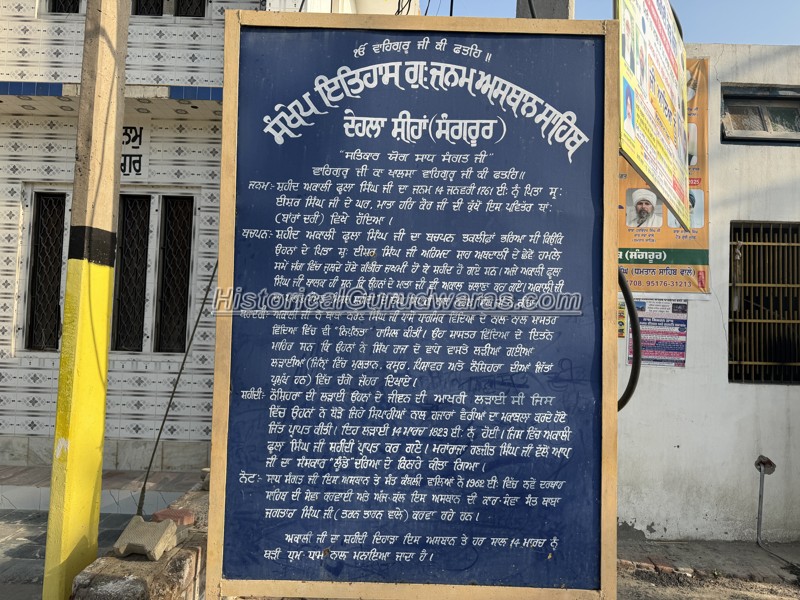 ੴ ਵਾਹਿਗੁਰੂ ਜੀ ਕੀ ਫਤਹਿ॥
ਸੰਖੇਪ ਇਤਿਹਾਸ ਗੁ: ਜਨਮ ਅਸਥਾਨ ਸਾਹਿਬ
ਦੇਹਲਾ ਸੀਹਾਂ (ਸੰਗਰੂਰ)
"ਸਤਿਕਾਰ ਯੋਗ ਸਾਧ ਸੰਗਤ ਜੀ"
ਵਾਹਿਗੁਰੂ ਜੀ ਕਾ ਖਾਲਸਾ ਵਾਹਿਗੁਰੂ ਜੀ ਕੀ ਫਤਹਿ॥
ਜਨਮ:- ਸ਼ਹੀਦ ਅਕਾਲੀ ਫੂਲਾ ਸਿੰਘ ਜੀ ਦਾ ਜਨਮ 14 ਜਨਵਰੀ 1761 ਈ: ਨੂੰ ਪਿਤਾ ਸ੍ਰ:
ਈਸ਼ਰ ਸਿੰਘ ਜੀ ਦੇ ਘਰ, ਮਾਤਾ ਹਰਿ ਕੌਰ ਜੀ ਦੀ ਕੁੱਖੋਂ ਇਸ ਪਵਿੱਤਰ ਥਾਂ:
(ਬਾਂਗਰ ਦਰੀ) ਵਿਖੇ ਹੋਇਆ।
ਬਚਪਨ:- ਸ਼ਹੀਦ ਅਕਾਲੀ ਫੂਲਾ ਸਿੰਘ ਜੀ ਦਾ ਬਚਪਨ ਤਕਲੀਫਾਂ ਭਰਿਆ ਸੀ ਕਿਉਂਕਿ
ਉਹਨਾਂ ਦੇ ਪਿਤਾ ਸ੍ਰ: ਈਸ਼ਰ ਸਿੰਘ ਜੀ ਅਹਿਮਦ ਸ਼ਾਹ ਅਬਦਾਲੀ ਦੇ ਛੇਵੇਂ ਹਮਲੇ
ਸਮੇਂ ਜੰਗ ਵਿੱਚ ਜੂਝਦੇ ਹੋਏ ਗੰਭੀਰ ਜ਼ਖਮੀ ਹੋ ਕੇ ਸ਼ਹੀਦ ਹੋ ਗਏ ਸਨ। ਅਜੇ ਅਕਾਲੀ ਫੂਲਾ
ਸਿੰਘ ਜੀ ਬਾਲਕ ਹੀ ਸਨ ਕਿ ਉਹਨਾਂ ਦੇ ਮਾਤਾ ਜੀ ਵੀ ਅਕਾਲ ਚਲਾਣਾ ਕਰ ਗਏ। ਅਕਾਲੀ ਜੀ
HistoricalGurudwaras.com
ਅਕਾਲੀ ਜੀ ਨੇ ਬਾਬਾ ਨਰੈਣ ਸਿੰਘ ਜੀ ਪਾਸੋਂ ਧਾਰਮਿਕ ਵਿੱਦਿਆ ਦੇ ਨਾਲ ਨਾਲ ਸ਼ਾਸਤਰ
ਵਿੱਦਿਆ ਵਿੱਚ ਵੀ "ਨਿਪੁੰਨਤਾ" ਹਾਸਿਲ ਕੀਤੀ। ਉਹ ਸ਼ਾਸਤਰ ਵਿੱਦਿਆ ਦੇ ਇਤਨੇ
ਮਾਹਿਰ ਸਨ ਕਿ ਉਹਨਾਂ ਨੇ ਸਿੱਖ ਰਾਜ ਦੇ ਵਾਧੇ ਵਾਸਤੇ ਲੜੀਆਂ ਗਈਆਂ
ਲੜਾਈਆਂ (ਜਿੰਨ੍ਹਾਂ ਵਿੱਚ ਮੁਲਤਾਨ, ਕਸੂਰ, ਪਿਸ਼ਾਵਰ ਅਤੇ ਨੌਸ਼ਿਹਰਾ ਦੀਆਂ ਜਿੱਤਾਂ
ਪ੍ਰਮੁੱਖ ਹਨ) ਵਿੱਚ ਚੰਗੇ ਜੌਹਰ ਦਿਖਾਏ।
ਸ਼ਹੀਦੀ: ਨੌਸ਼ਿਹਰਾ ਦੀ ਲੜਾਈ ਉਹਨਾਂ ਦੇ ਜੀਵਨ ਦੀ ਆਖਰੀ ਲੜਾਈ ਸੀ ਜਿਸ
ਵਿੱਚ ਉਹਨਾਂ ਨੇ ਥੋੜੇ ਜਿਹੇ ਸਿਪਾਹੀਆਂ ਨਾਲ ਹਜ਼ਾਰਾਂ ਵੈਰੀਆਂ ਦਾ ਮੁਕਾਬਲਾ ਕਰਦੇ ਹੋਏ
ਜਿੱਤ ਪ੍ਰਾਪਤ ਕੀਤੀ। ਇਹ ਲੜਾਈ 14 ਮਾਰਚ 1823 ਈ: ਨੂੰ ਹੋਈ। ਜਿਸ ਵਿੱਚ ਅਕਾਲੀ
ਫੂਲਾ ਸਿੰਘ ਜੀ ਸ਼ਹੀਦੀ ਪ੍ਰਾਪਤ ਕਰ ਗਏ। ਮਹਾਰਾਜਾ ਰਣਜੀਤ ਸਿੰਘ ਜੀ ਵੱਲੋਂ ਆਪ
ਜੀ ਦਾ ਸੰਸਕਾਰ "ਲੁੰਡੇ" ਦਰਿਆ ਦੇ ਕਿਨਾਰੇ ਕੀਤਾ ਗਿਆ।
ਨੋਟ:- ਸਾਧ ਸੰਗਤ ਜੀ ਇਸ ਅਸਥਾਨ ਤੇ ਸੰਤ ਕੰਬਲੀ ਵਾਲਿਆਂ ਨੇ 1962 ਈ: ਵਿੱਚ ਨਵੇਂ ਦਰਬਾਰ
ਸਾਹਿਬ ਦੀ ਸੇਵਾ ਕਰਵਾਈ ਅਤੇ ਅੱਜ-ਕੱਲ੍ਹ ਇਸ ਅਸਥਾਨ ਦੀ ਕਾਰ-ਸੇਵਾ ਸੰਤ ਬਾਬਾ
ਜਗਤਾਰ ਸਿੰਘ ਜੀ (ਤਰਨ ਤਾਰਨ ਵਾਲੇ) ਕਰਵਾ ਰਹੇ ਹਨ।
ਅਕਾਲੀ ਜੀ ਦਾ ਸ਼ਹੀਦੀ ਦਿਹਾੜਾ ਇਸ ਅਸਥਾਨ ਤੇ ਹਰ ਸਾਲ 14 ਮਾਰਚ ਨੂੰ
ਬੜੀ ਧੂਮ ਧਾਮ ਨਾਲ ਮਨਾਇਆ ਜਾਂਦਾ ਹੈ।
(ਸੰਗਰੂਰ)
(ਧਮਤਾਨ ਸਾਹਿਬ ਵਾਲੇ)
708, 95176-31213